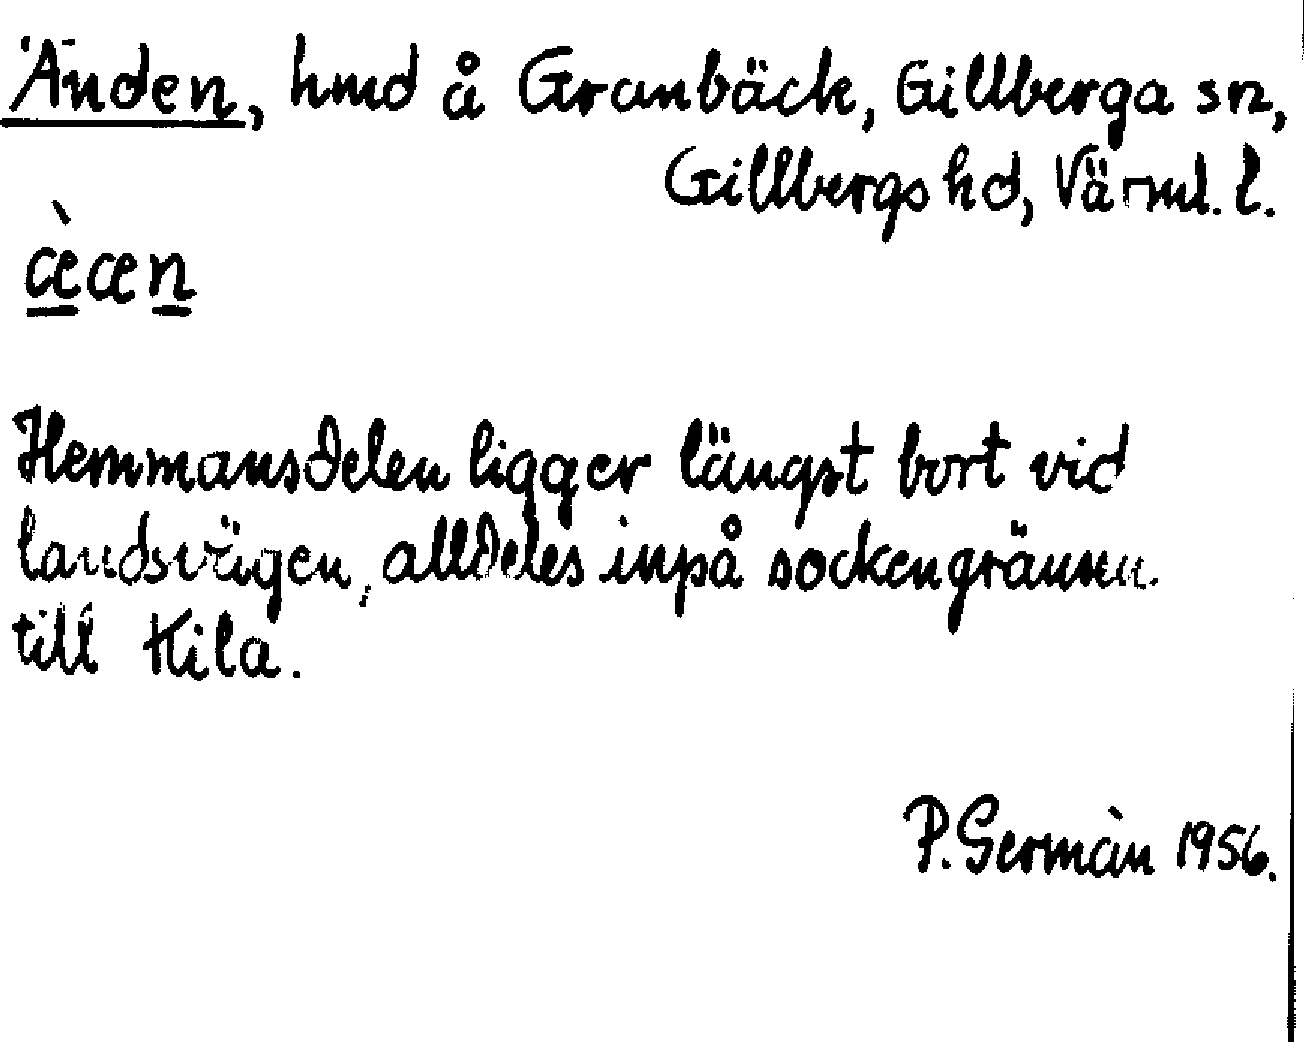 Änden, hmd å Granbäck, Gillberga sn,
Gillbergs hd, Värml. l.
æ̀æn
Hemmansdelen ligger längst bort vid
landsvägen, alldeles inpå sockengränsen
till Kila.
P. Germàn 1956.